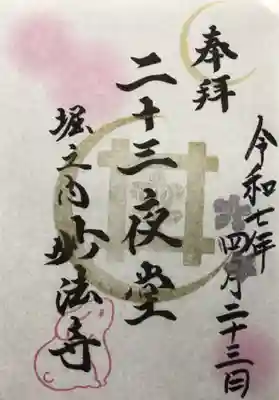 奉拝
令和七年
四月二十三日
二十三夜堂
堀之内妙法寺